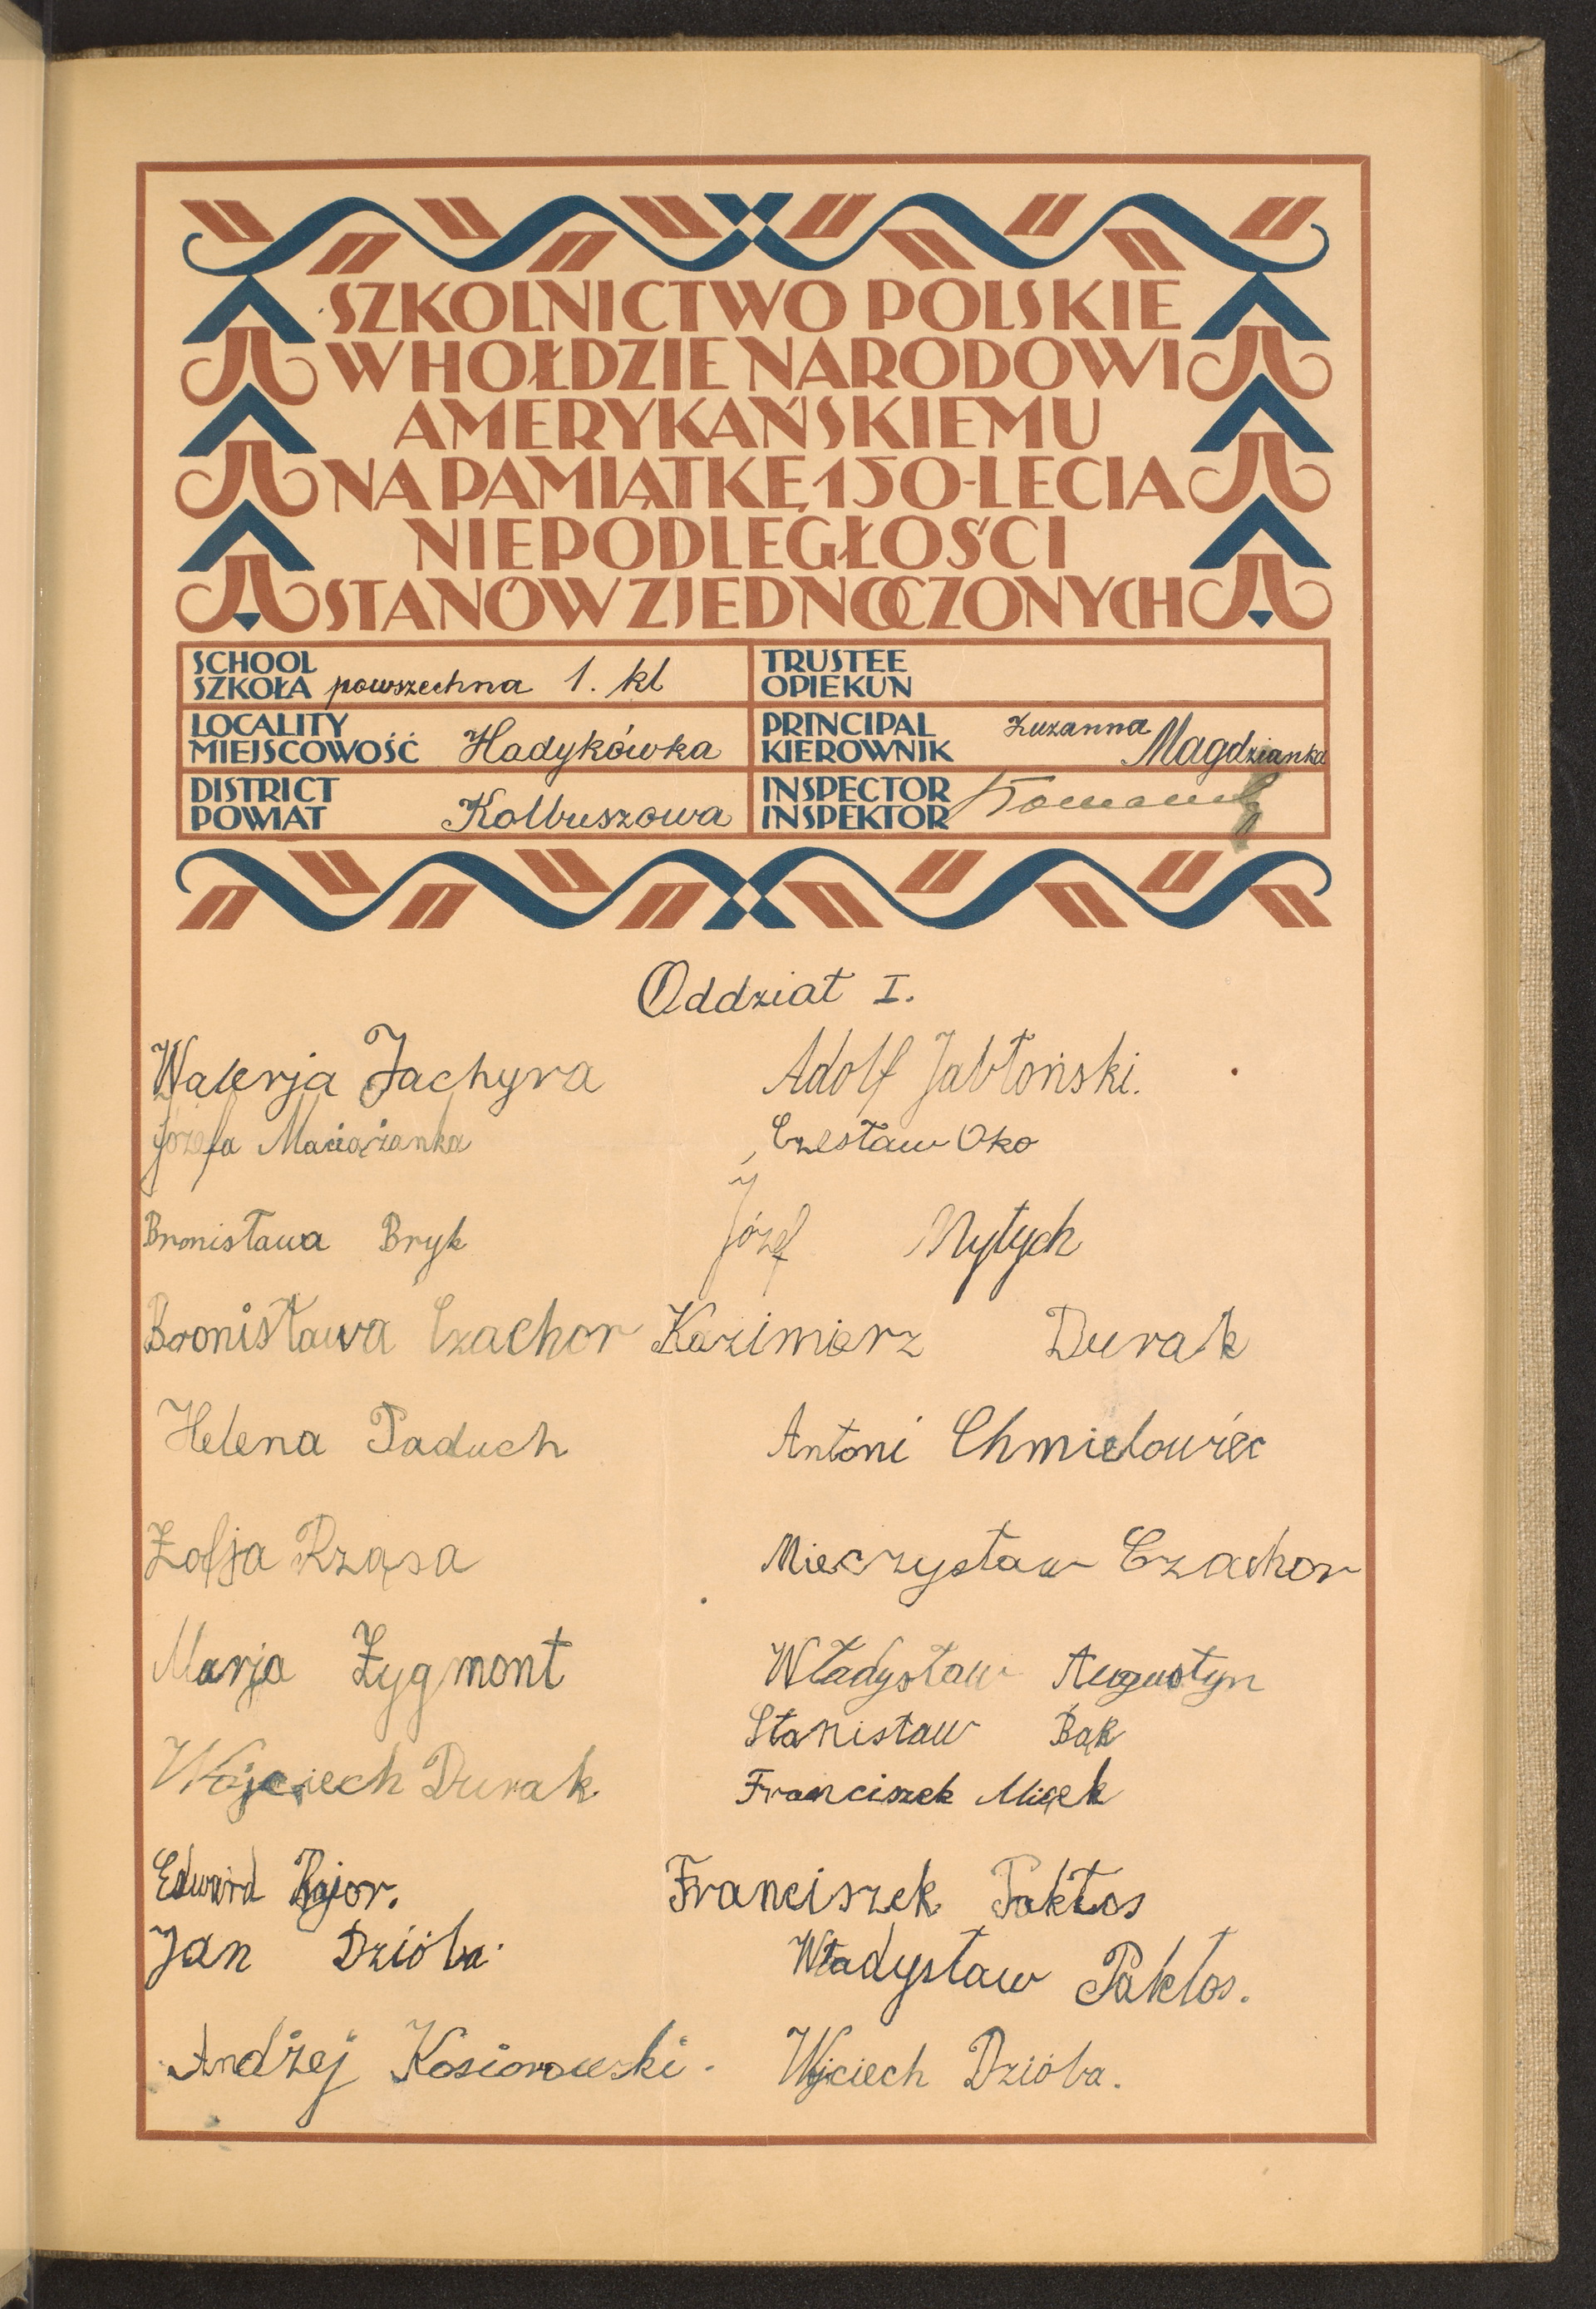 SZKOLNICTWO POLSKIE
W HOŁDZIE NARODOWI
AMERYKAŃSKIEMU
NA PAMIĄTKĘ 150-LECIA
NIEPODLEGŁOŚCI
STANÓW ZJEDNOCZONYCH
SCHOOL
SZKOŁA powszechna 1. kl
TRUSTEE
OPIEKUN
LOCALITY
MIEJSCOWOŚĆ Hadykówka
PRINCIPAL
KIEROWNIK Zuzanna Magdzianka
DISTRICT
POWIAT Kolbuszowa
INSPECTOR
INSPEKTOR
Oddział I.
Walerja Jachyra
Adolf Jabłoński.
Józefa Maciążanka
Czesław Oko
Bronisława Bryk
Józef Nytych
Bronisława Czachor
Kazimierz Durak
Helena Paduch
Antoni Chmielowiec
Zofja Rząsa
Mieczysław Czachor
Marja Zygmont
Władysław Augustyn
Stanisław Bąk
Wojciech Durak
Franciszek Micek
Edward Rajor.
Franciszek Pakłos
Jan Dzióba
Władysław Pakłos.
Andżej Kosiorowski.
Wjciech Dzióba.